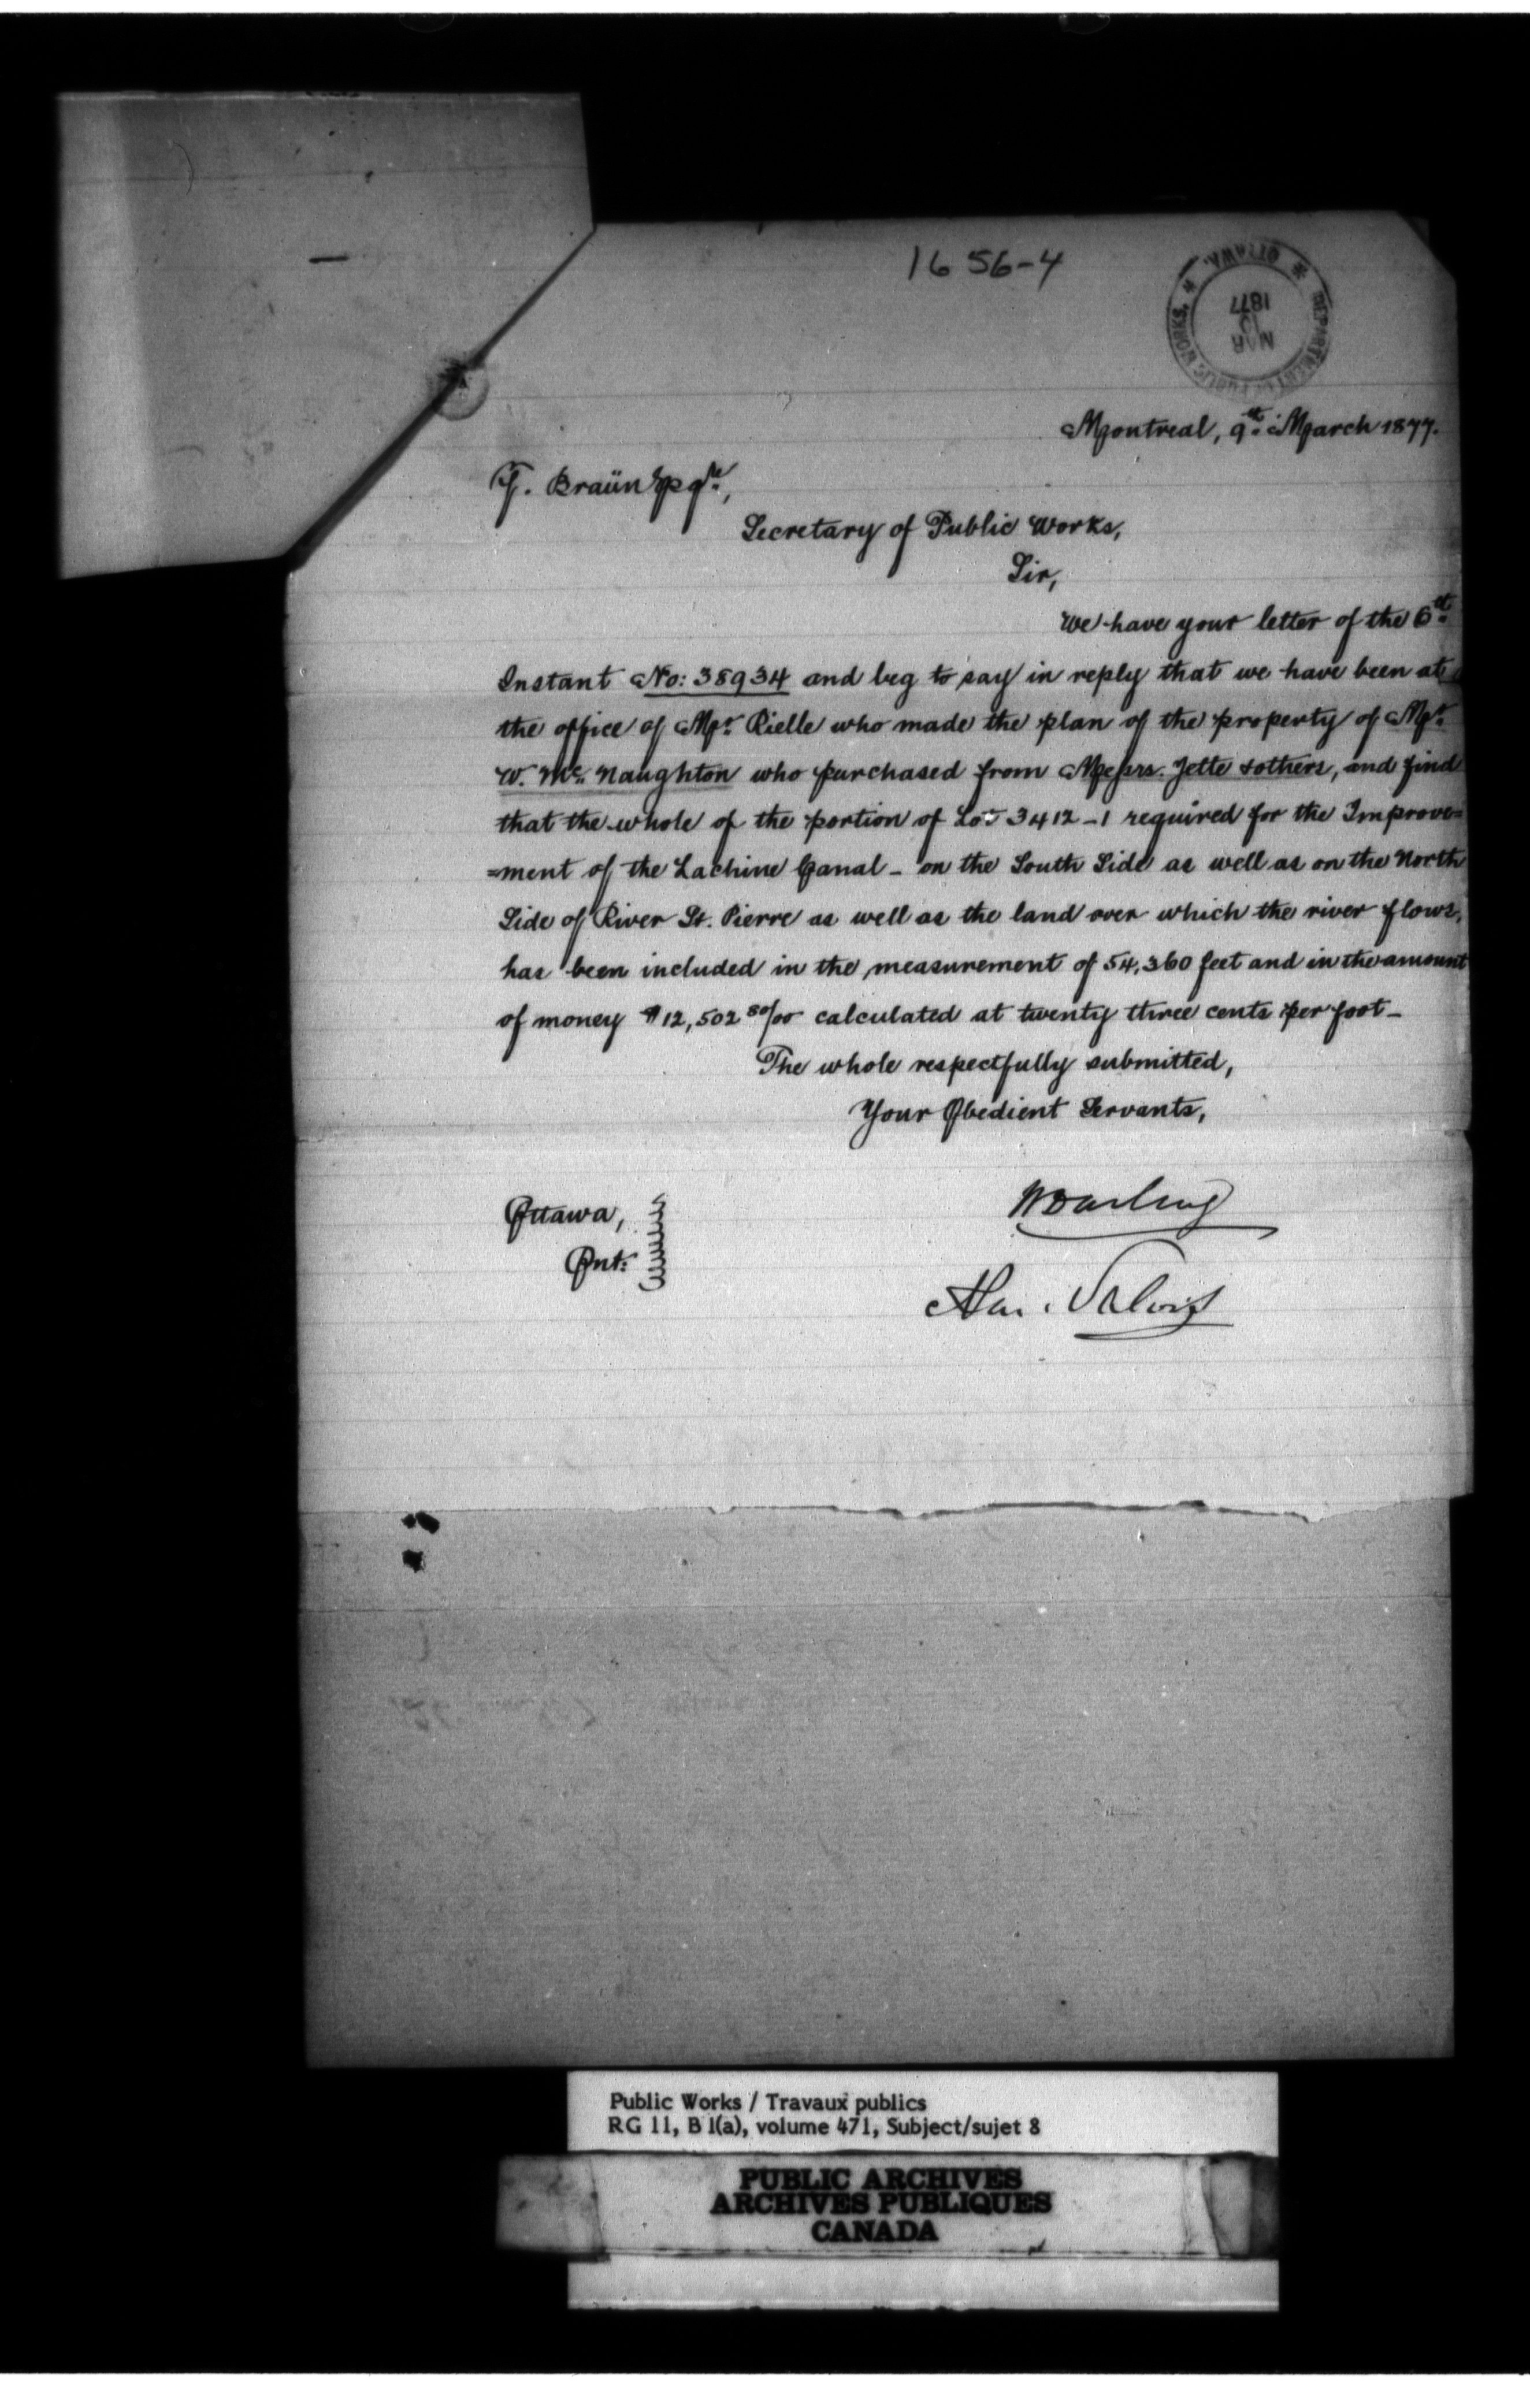 1656-4
DEPARTMENT OF PUBLIC WORKS, OTTAWA.
MAR
10
1877
Montreal, 9th March 1877.
F. Braün Esqre,
Secretary of Public Works,
Sir,
We have your letter of the 6th
Instant No: 38934 and beg to say in reply that we have been at
the office of Mr. Rielle who made the plan of the property of Mr.
W. Mc. Naughton who purchased from Messrs. Jette & others, and find
that the whole of the portion of Lot 3412-1 required for the Improve=
=ment of the Lachine Canal - on the South Side as well as on the North
Side of River St. Pierre as well as the land over which the river flows,
has been included in the measurement of 54,360 feet and in the amount
of money $12,502 80/00 calculated at twenty three cents per foot -
The whole respectfully submitted,
Your Obedient Servants,
Ottawa,
Ont:
W Darling
Alex. Valois
Public Works / Travaux publics
RG 11, B 1(a), volume 471, Subject/sujet 8
PUBLIC ARCHIVES
ARCHIVES PUBLIQUES
CANADA